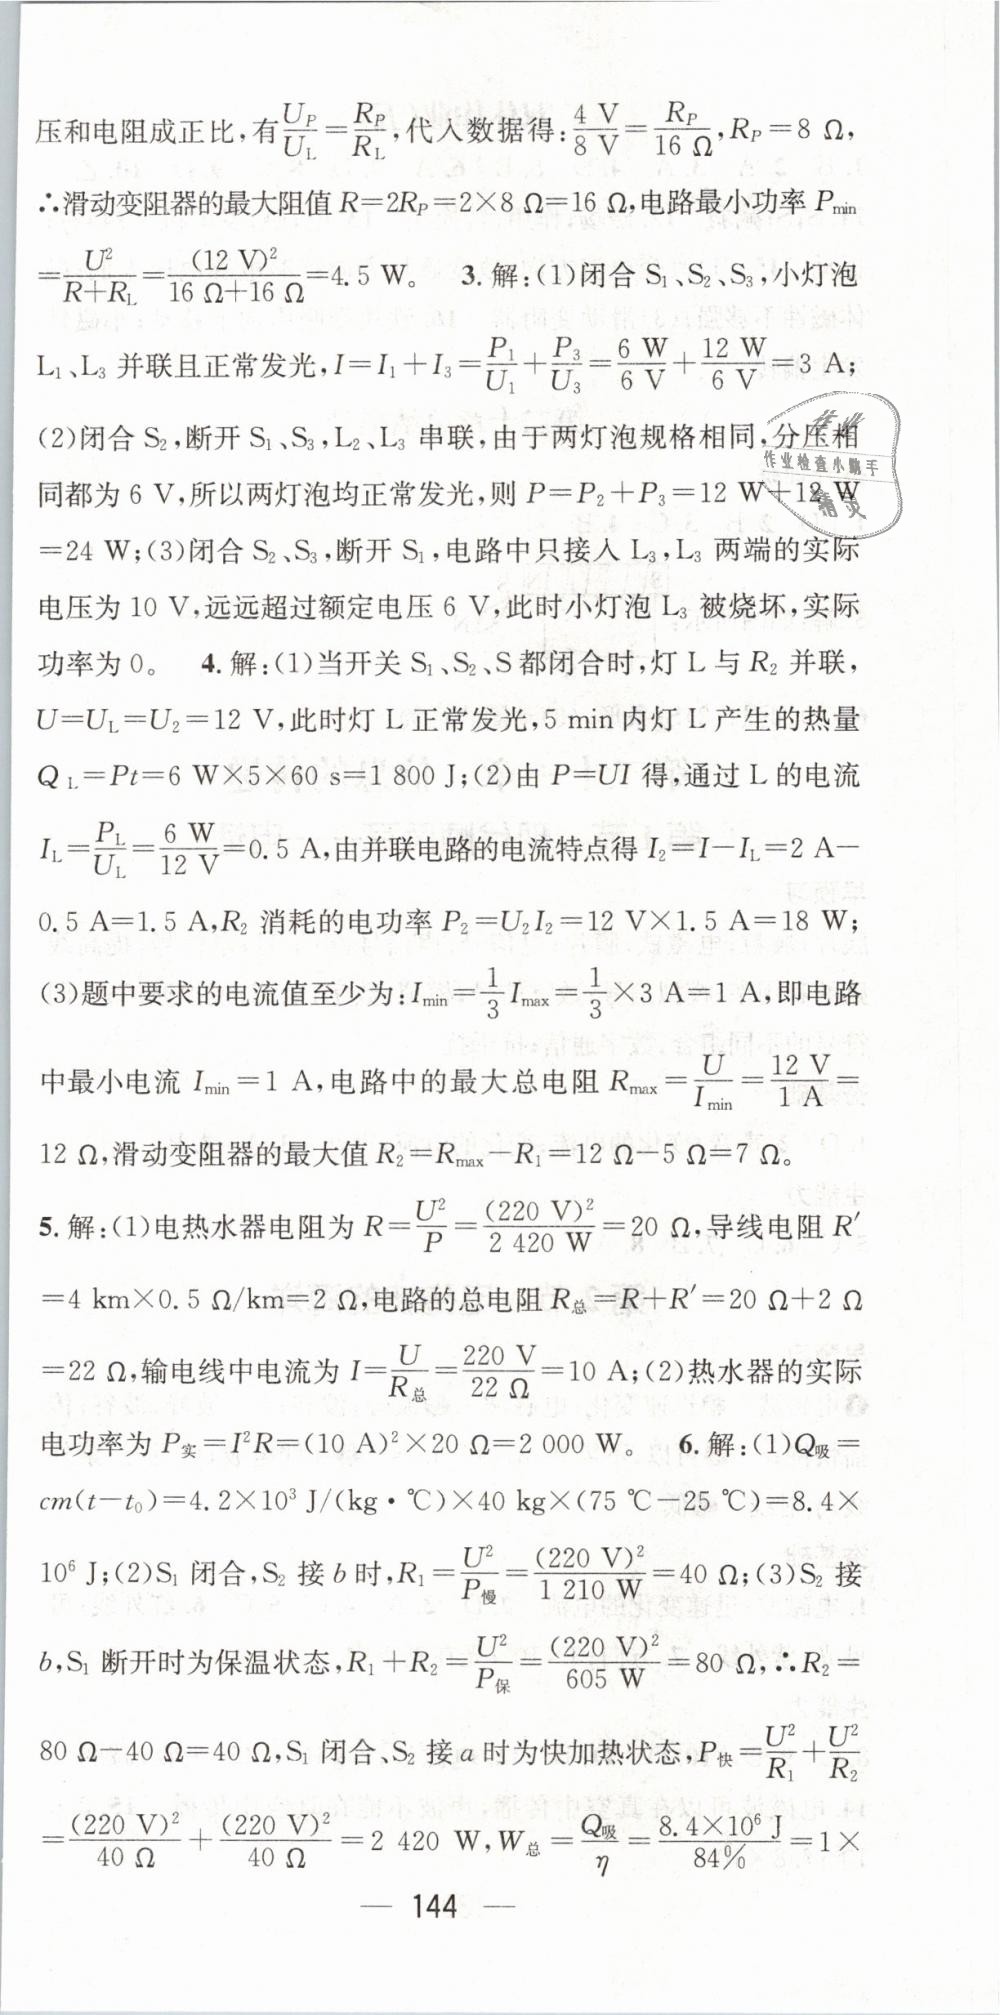 压和电阻成正比,有U_P/U_L=R_P/R_L,代入数据得:4 V/8 V=R_P/16 Ω,R_P=8 Ω,
∴滑动变阻器的最大阻值 R=2R_P=2×8 Ω=16 Ω,电路最小功率 P_min
=U²/(R+R_L)=(12 V)²/(16 Ω+16 Ω)=4.5 W。 3.解:(1)闭合 S₁、S₂、S₃,小灯泡
L₁、L₃ 并联且正常发光,I=I₁+I₃=P₁/U₁+P₃/U₃=6 W/6 V+12 W/6 V=3 A;
(2)闭合 S₂,断开 S₁、S₃,L₂、L₃ 串联,由于两灯泡规格相同,分压相
同都为 6 V,所以两灯泡均正常发光,则 P=P₂+P₃=12 W+12 W
=24 W;(3)闭合 S₂、S₃,断开 S₁,电路中只接入 L₃,L₃ 两端的实际
电压为 10 V,远远超过额定电压 6 V,此时小灯泡 L₃ 被烧坏,实际
功率为 0。 4.解:(1)当开关 S₁、S₂、S 都闭合时,灯 L 与 R₂ 并联,
U=U_L=U₂=12 V,此时灯 L 正常发光,5 min 内灯 L 产生的热量
Q_L=Pt=6 W×5×60 s=1 800 J;(2)由 P=UI 得,通过 L 的电流
I_L=P_L/U_L=6 W/12 V=0.5 A,由并联电路的电流特点得 I₂=I-I_L=2 A-
0.5 A=1.5 A,R₂ 消耗的电功率 P₂=U₂I₂=12 V×1.5 A=18 W;
(3)题中要求的电流值至少为:I_min=1/3 I_max=1/3×3 A=1 A,即电路
中最小电流 I_min=1 A,电路中的最大总电阻 R_max=U/I_min=12 V/1 A=
12 Ω,滑动变阻器的最大值 R₂=R_max-R₁=12 Ω-5 Ω=7 Ω。
5.解:(1)电热水器电阻为 R=U²/P=(220 V)²/2 420 W=20 Ω,导线电阻 R′
=4 km×0.5 Ω/km=2 Ω,电路的总电阻 R总=R+R′=20 Ω+2 Ω
=22 Ω,输电线中电流为 I=U/R总=220 V/22 Ω=10 A;(2)热水器的实际
电功率为 P实=I²R=(10 A)²×20 Ω=2 000 W。 6.解:(1)Q吸=
cm(t-t₀)=4.2×10³ J/(kg·℃)×40 kg×(75 ℃-25 ℃)=8.4×
10⁶ J;(2)S₁ 闭合,S₂ 接 b 时,R₁=U²/P慢=(220 V)²/1 210 W=40 Ω;(3)S₂ 接
b,S₁ 断开时为保温状态,R₁+R₂=U²/P保=(220 V)²/605 W=80 Ω,∴R₂=
80 Ω-40 Ω=40 Ω,S₁ 闭合、S₂ 接 a 时为快加热状态,P快=U²/R₁+U²/R₂
=(220 V)²/40 Ω+(220 V)²/40 Ω=2 420 W,W总=Q吸/η=8.4×10⁶ J/84%=1×
— 144 —
作业
作业检查小助手
精灵